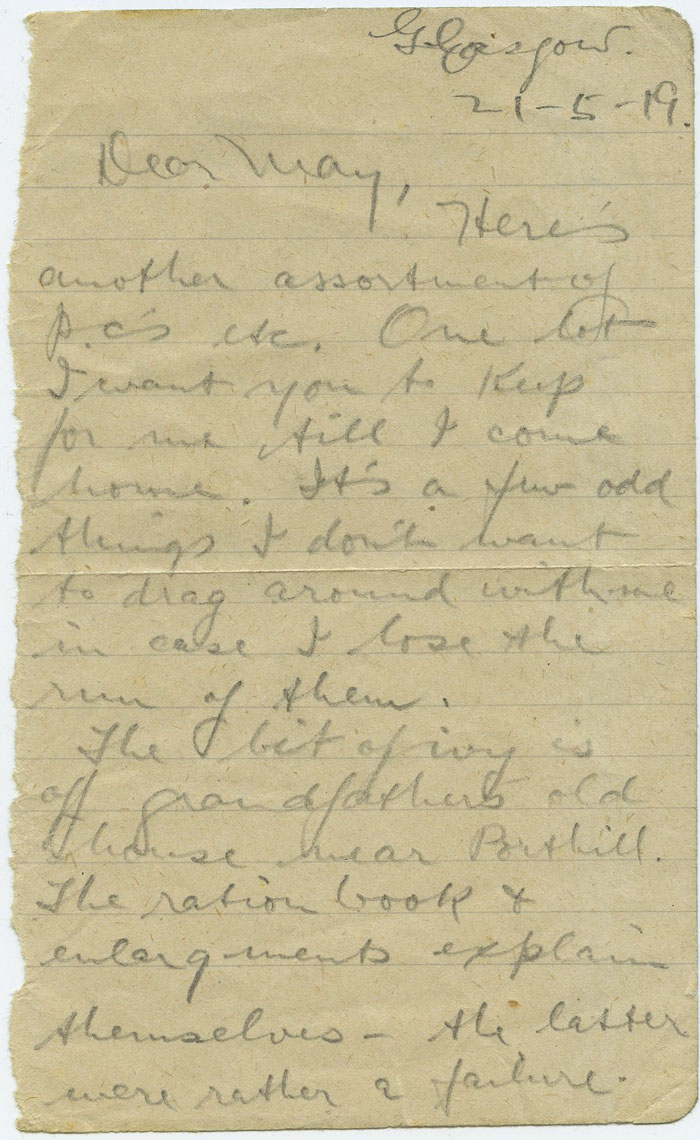 Glasgow.
21-5-19.
Dear May,
Here's
another assortment of
p.c's etc. One lot
I want you to keep
for me till I come
home. It's a few odd
things I don't want
to drag around with me
in case I lose the
run of them.
The bit of ivy is
off grandfathers old
house near Porthill.
The ration book &
enlargments explain
themselves – the latter
were rather a failure.